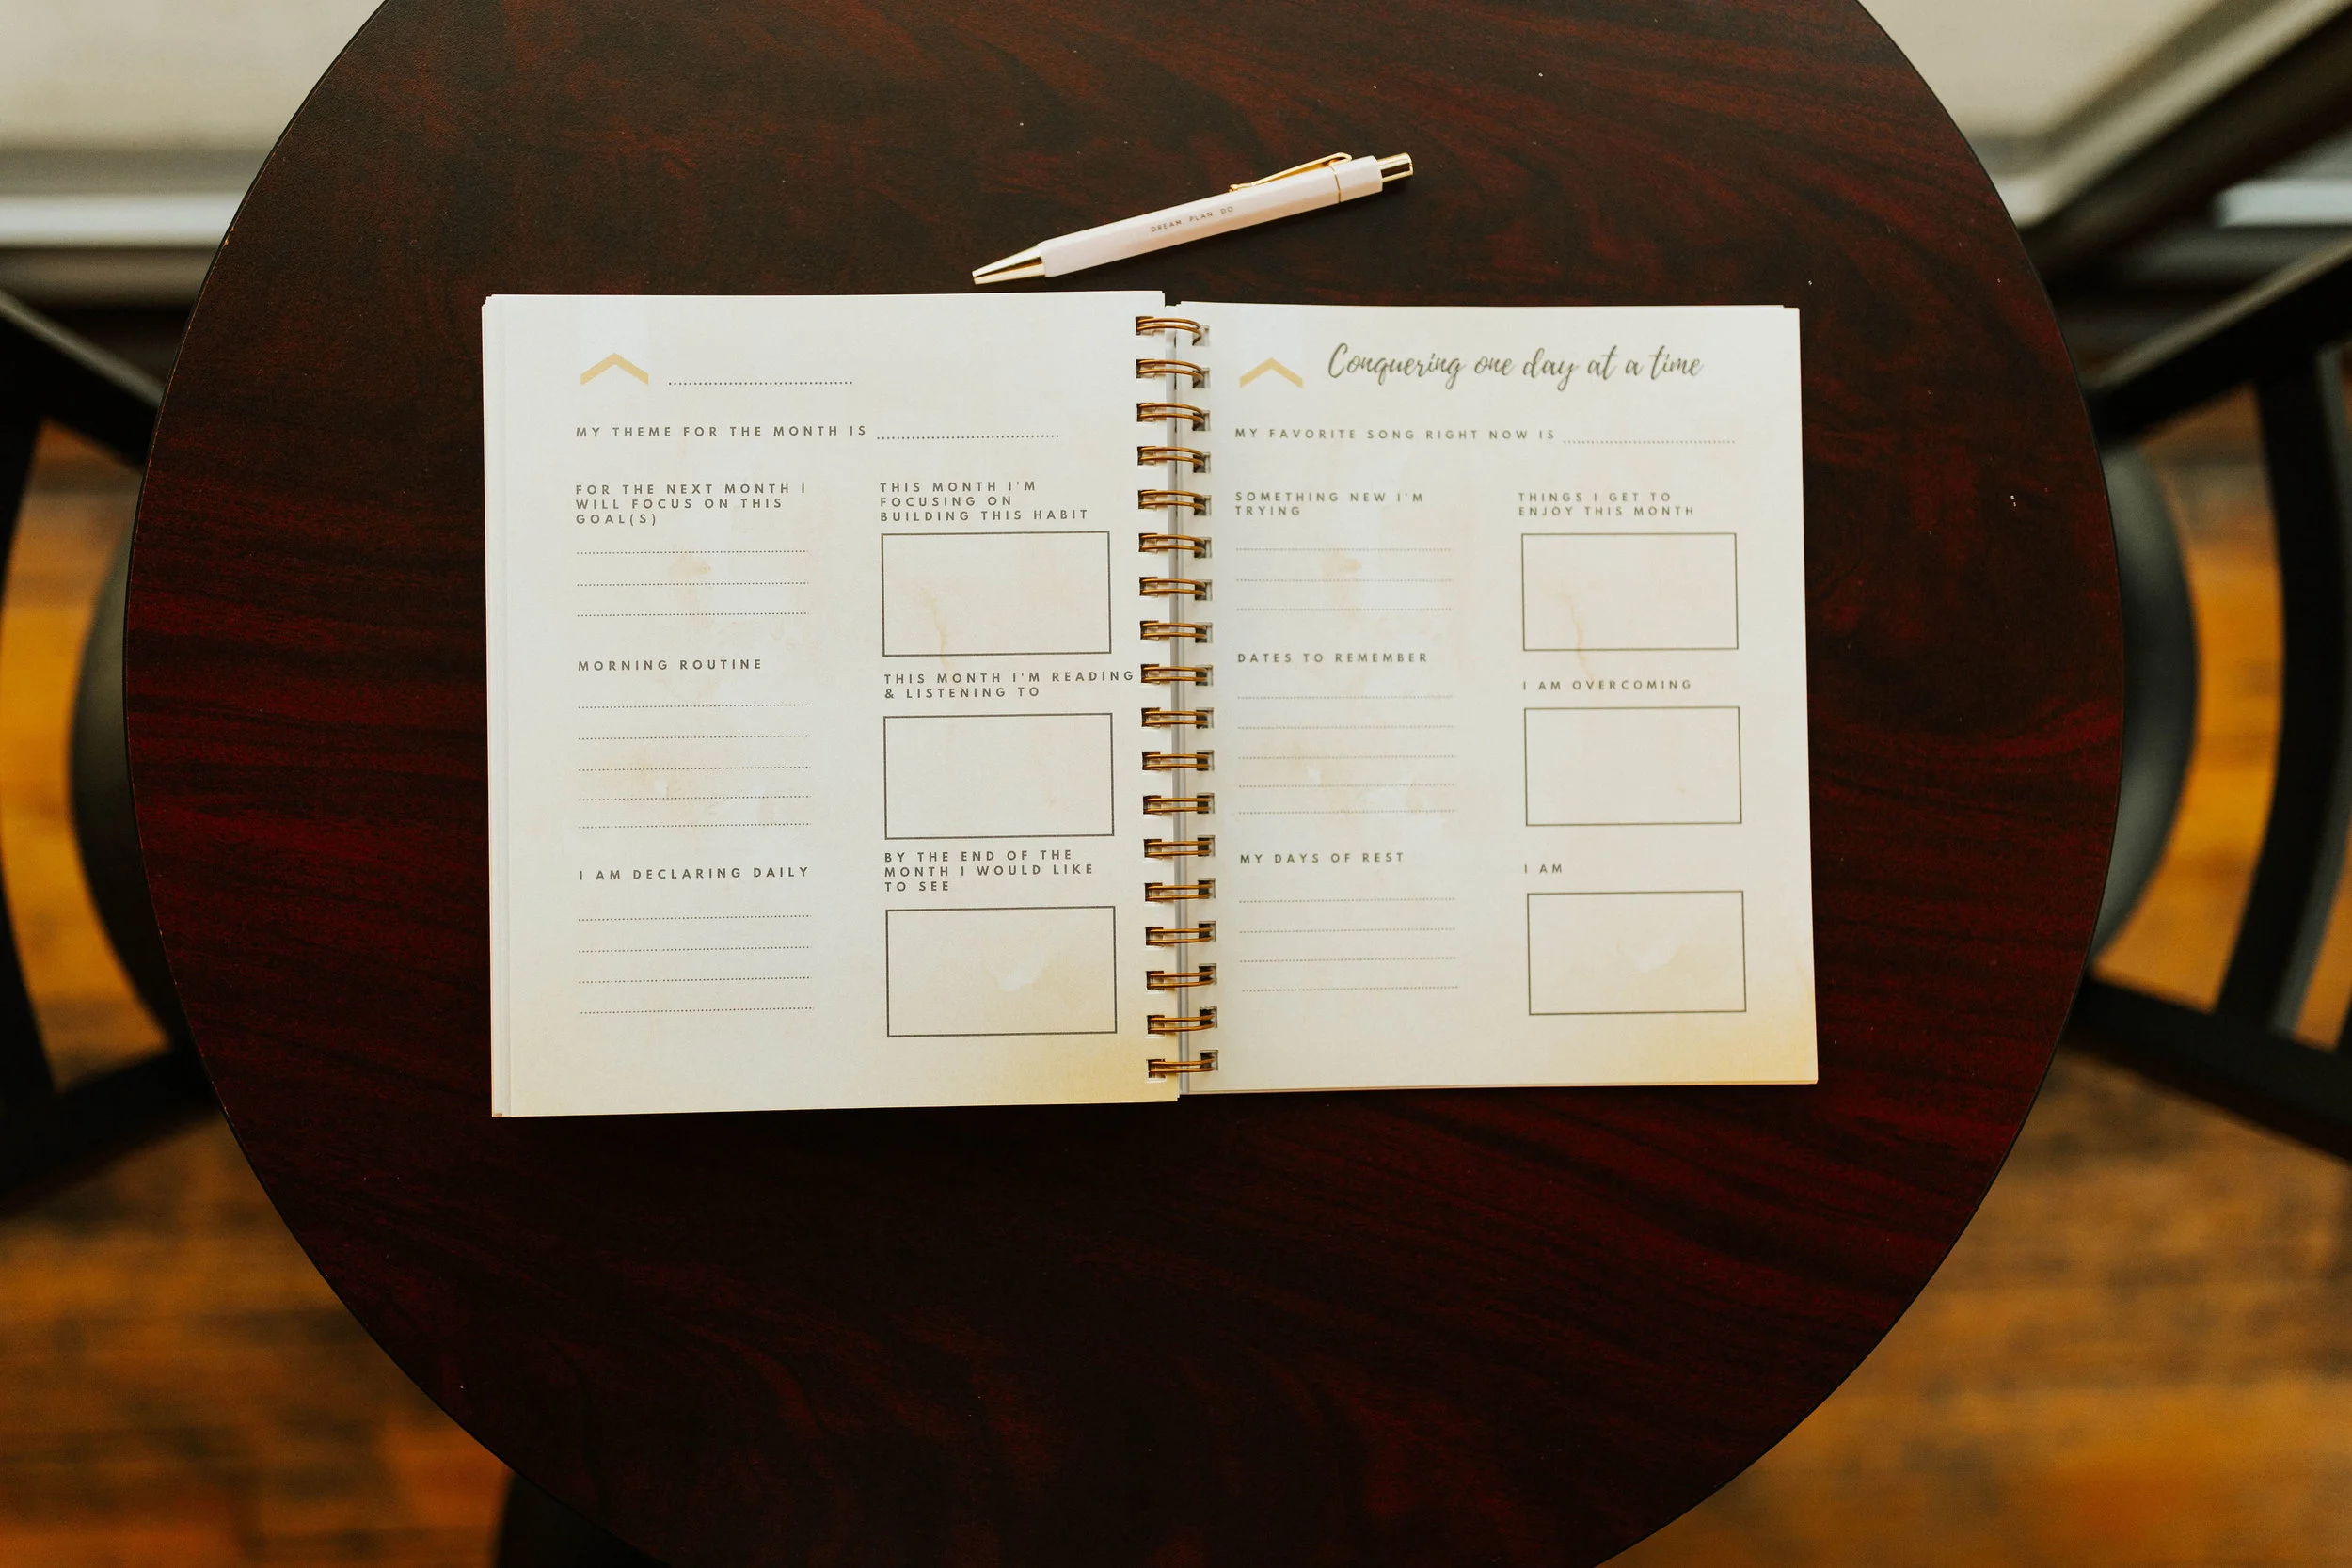 DREAM. PLAN. DO
MY THEME FOR THE MONTH IS
FOR THE NEXT MONTH I
WILL FOCUS ON THIS
GOAL(S)
MORNING ROUTINE
I AM DECLARING DAILY
THIS MONTH I'M
FOCUSING ON
BUILDING THIS HABIT
THIS MONTH I'M READING
& LISTENING TO
BY THE END OF THE
MONTH I WOULD LIKE
TO SEE
Conquering one day at a time
MY FAVORITE SONG RIGHT NOW IS
SOMETHING NEW I'M
TRYING
DATES TO REMEMBER
MY DAYS OF REST
THINGS I GET TO
ENJOY THIS MONTH
I AM OVERCOMING
I AM